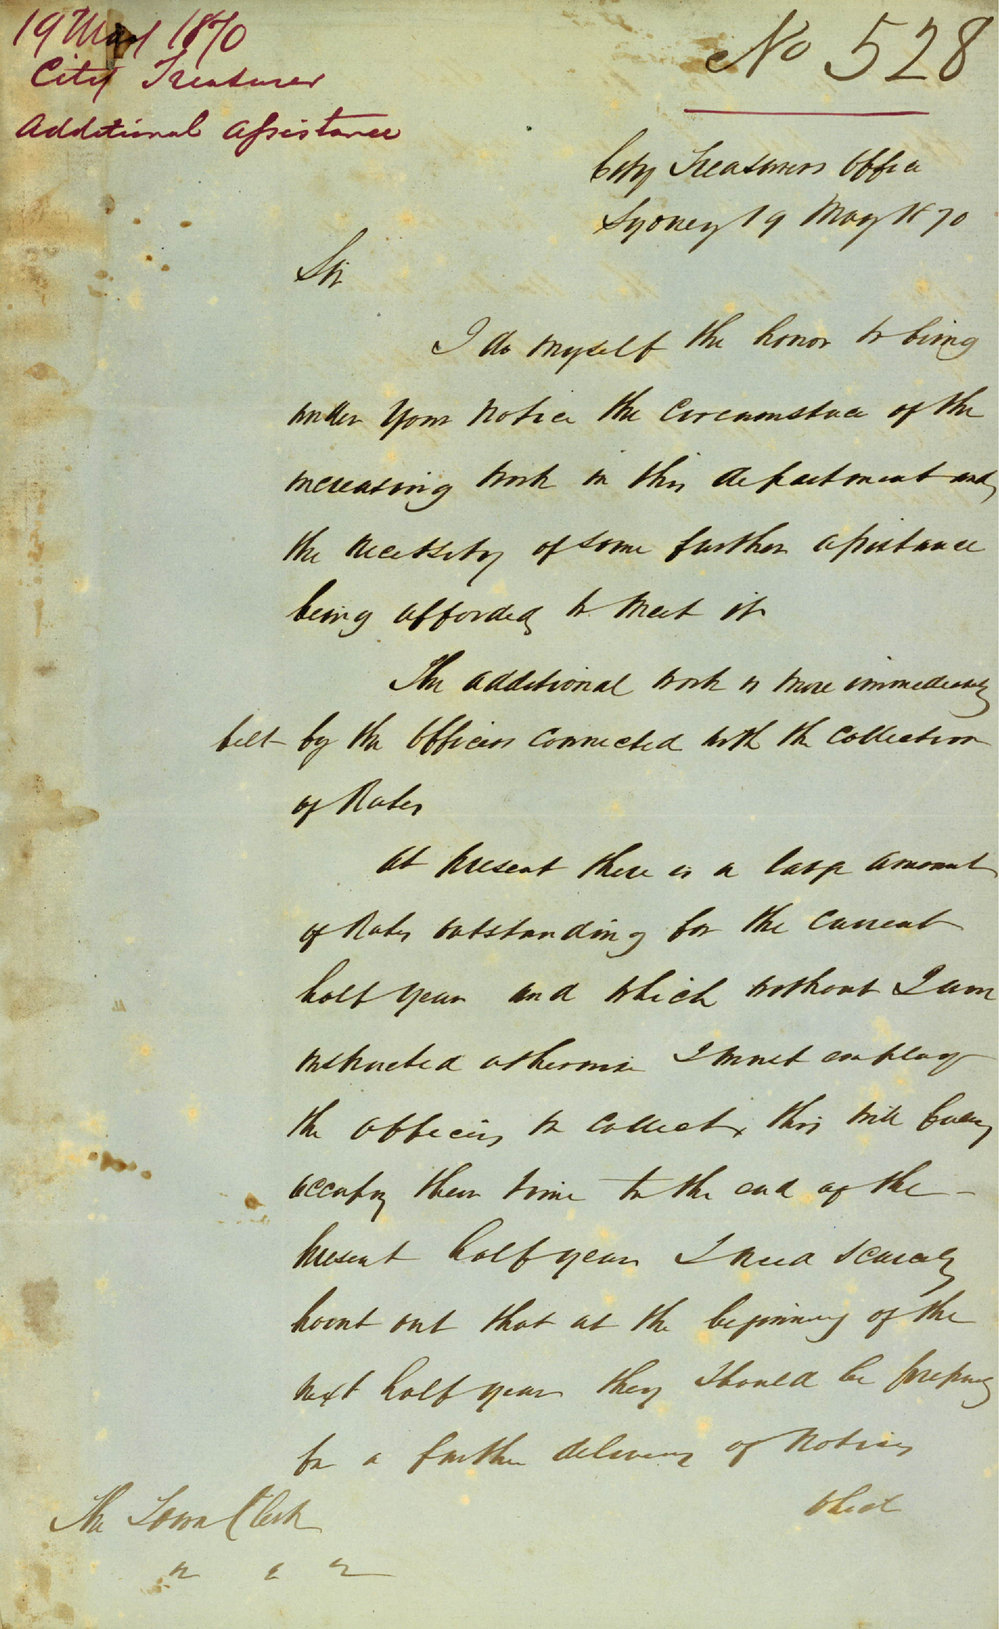 19 May 1870
City Treasurer
Additional Assistance
No 528
City Treasurers Office
Sydney 19 May 1870
Sir
I do myself the honor to bring
under Your Notice the Circumstance of the
increasing work in this department and
the necessity of some further assistance
being afforded to meet it
The additional work is more immediately
felt by the Officers connected with the Collection
of Rates
At present there is a large amount
of Rates outstanding for the Current
half year and which without I am
instructed otherwise I must employ
the officers to Collect, this will fully
occupy their time to the end of the
present half year I need scarcely
point out that at the beginning of the
next half year they should be preparing
for a further delivery of Notices
The Town Clerk